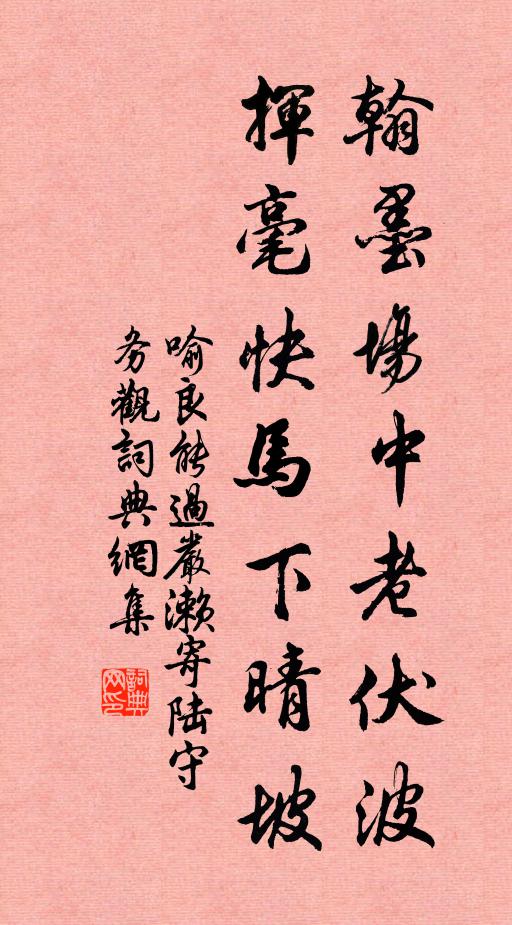 翰墨場中老伏波
揮毫快馬下晴坡
喻良能過嚴瀨寄陸守
务觀詞典網集
詞典网印